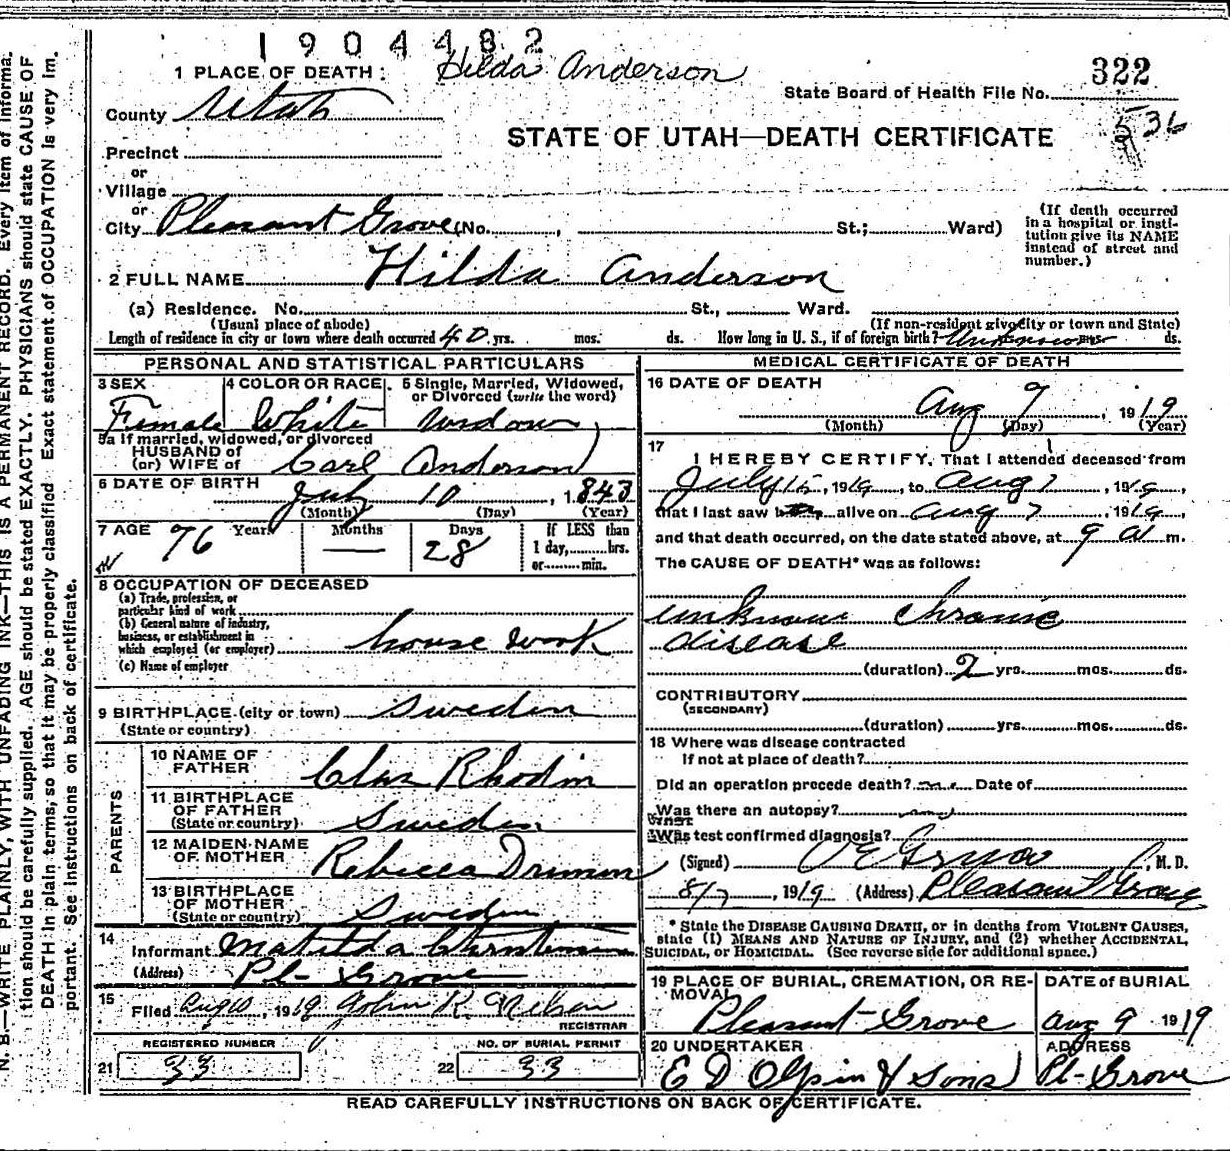 1904482
Hilda Anderson
322
536
1 PLACE OF DEATH:
State Board of Health File No.
County Utah
STATE OF UTAH—DEATH CERTIFICATE
Precinct
or
Village
or
City Pleasant Grove (No. , St.; Ward)
(If death occurred in a hospital or insti-
tution give its NAME instead of street and number.)
2 FULL NAME Hilda Anderson
(a) Residence. No. St., Ward.
(Usual place of abode) (If non-resident give city or town and State)
Length of residence in city or town where death occurred 40 yrs. mos. ds. How long in U. S., if of foreign birth? Unknown yrs. ds.
PERSONAL AND STATISTICAL PARTICULARS
3 SEX Female
4 COLOR OR RACE White
5 Single, Married, Widowed, or Divorced (write the word) widow
5a If married, widowed, or divorced
HUSBAND of
(or) WIFE of Carl Anderson
6 DATE OF BIRTH July 10, 1843
(Month) (Day) (Year)
7 AGE 76 Years Months — Days 28 If LESS than 1 day, hrs. or min.
8 OCCUPATION OF DECEASED
(a) Trade, profession, or particular kind of work
(b) General nature of industry, business, or establishment in which employed (or employer) house work
(c) Name of employer
9 BIRTHPLACE (city or town) Sweden
(State or country)
PARENTS
10 NAME OF FATHER Clas Rhodin
11 BIRTHPLACE OF FATHER (State or country) Sweden
12 MAIDEN NAME OF MOTHER Rebecca
13 BIRTHPLACE OF MOTHER (State or country) Sweden
14 Informant Matilda
(Address) Pl- Grove
15 Filed Aug 10, 1919 John R. Nelson
REGISTRAR
REGISTERED NUMBER
21 33
NO. OF BURIAL PERMIT
22 33
MEDICAL CERTIFICATE OF DEATH
16 DATE OF DEATH
Aug 7, 1919
(Month) (Day) (Year)
17 I HEREBY CERTIFY, That I attended deceased from
July 15, 1919, to Aug 7, 1919,
that I last saw h alive on Aug 7, 1919,
and that death occurred, on the date stated above, at 9 a m.
The CAUSE OF DEATH* was as follows:
unknown chronic
disease
(duration) 2 yrs. mos. ds.
CONTRIBUTORY
(SECONDARY)
(duration) yrs. mos. ds.
18 Where was disease contracted
If not at place of death?
Did an operation precede death? no Date of
Was there an autopsy? no
What test confirmed diagnosis?
(Signed) , M. D.
8/7, 1919 (Address) Pleasant Grove
* State the DISEASE CAUSING DEATH, or in deaths from VIOLENT CAUSES,
state (1) MEANS AND NATURE OF INJURY, and (2) whether ACCIDENTAL,
SUICIDAL, or HOMICIDAL. (See reverse side for additional space.)
19 PLACE OF BURIAL, CREMATION, OR RE-
MOVAL
Pleasant Grove
DATE of BURIAL
Aug 9 1919
20 UNDERTAKER
E D Olpin & Sons
ADDRESS
Pl- Grove
READ CAREFULLY INSTRUCTIONS ON BACK OF CERTIFICATE.
N. B.—WRITE PLAINLY, WITH UNFADING INK—THIS IS A PERMANENT RECORD. Every item of informa-
tion should be carefully supplied. AGE should be stated EXACTLY. PHYSICIANS should state CAUSE OF
DEATH in plain terms, so that it may be properly classified. Exact statement of OCCUPATION is very im-
portant. See instructions on back of certificate.